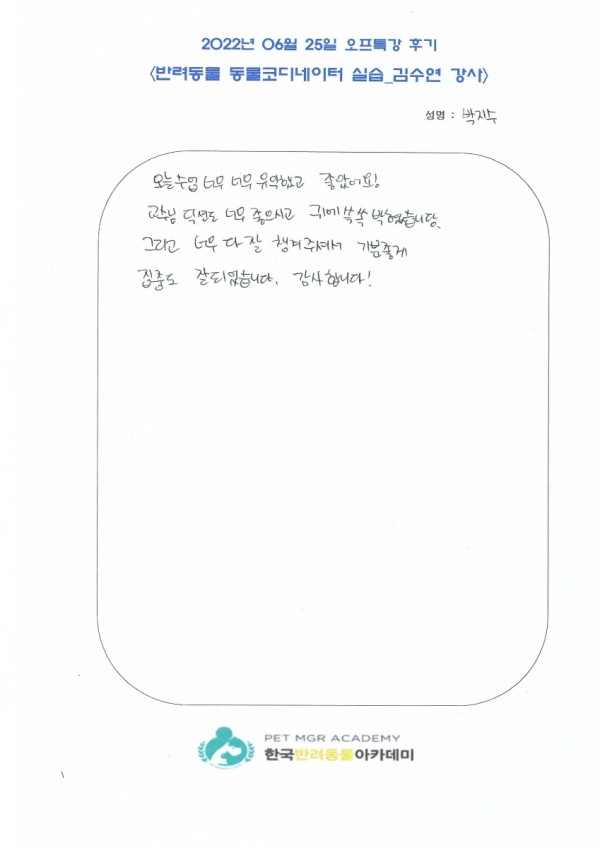 2022년 06월 25일 오프특강 후기
<반려동물 동물코디네이터 실습_김수연 강사>
성명 : 박지수
오늘수업 너무 너무 유익했고 좋았어요!
교수님 딕션도 너무 좋으시고 귀에 쏙쏙 박혔습니당.
그리고 너무 다 잘 챙겨주셔서 기분좋게
집중도 잘되었습니다. 감사합니다!
PET MGR ACADEMY
한국반려동물아카데미